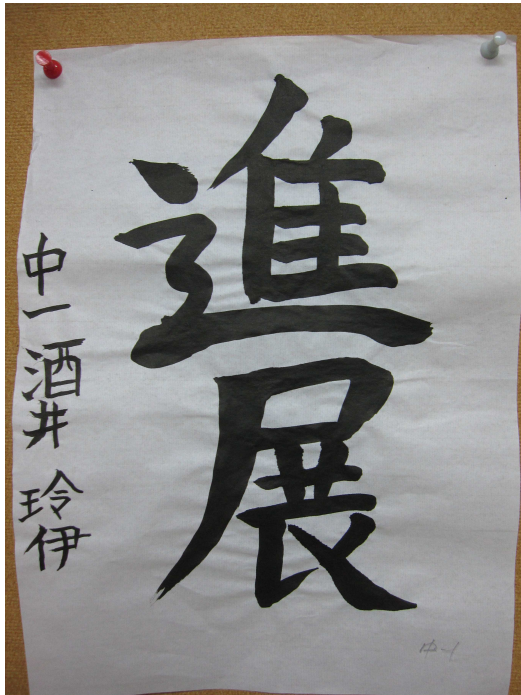 進展
中一 酒井 玲伊